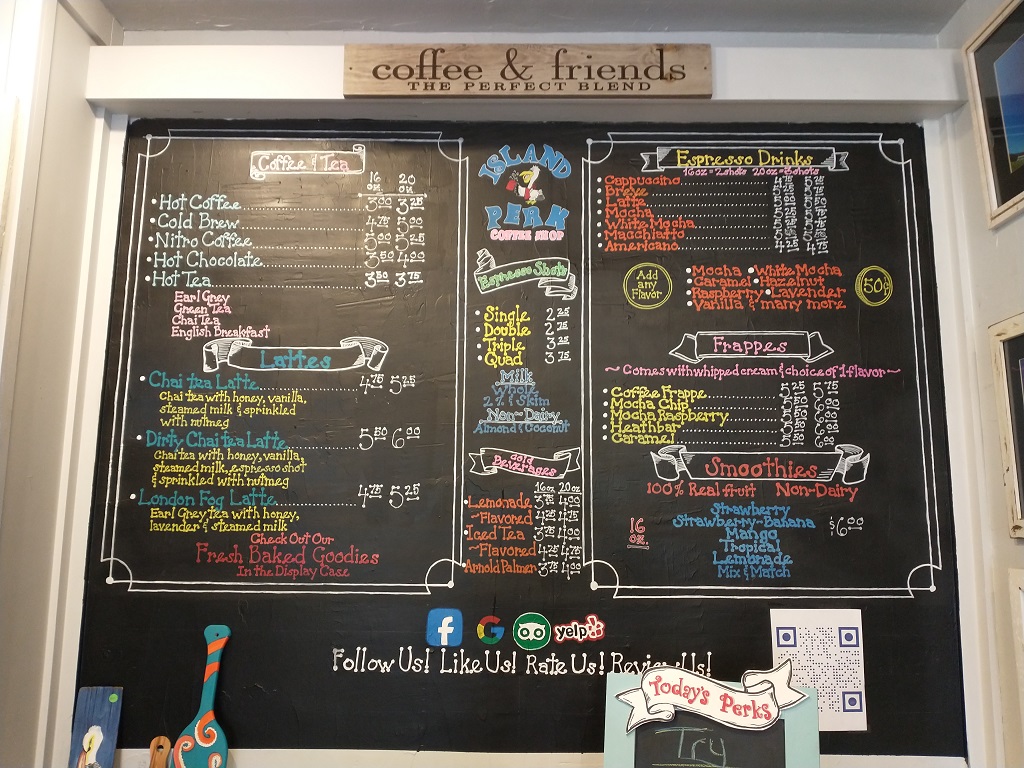 coffee & friends
THE PERFECT BLEND
Coffee & Tea
16 oz. 20 oz.
Hot Coffee 3.00 3.25
Cold Brew 4.75 5.00
Nitro Coffee 5.00 5.25
Hot Chocolate 3.50 4.00
Hot Tea 3.50 3.75
Earl Grey
Green Tea
Chai Tea
English Breakfast
Lattes
Chai tea Latte 4.75 5.25
Chai tea with honey, vanilla,
steamed milk & sprinkled
with nutmeg
Dirty Chai tea Latte 5.50 6.00
Chai tea with honey, vanilla,
steamed milk, espresso shot
& sprinkled with nutmeg
London Fog Latte 4.75 5.25
Earl Grey tea with honey,
lavender & steamed milk
Check Out Our
Fresh Baked Goodies
In the Display Case
ISLAND
PERK
COFFEE SHOP
Espresso Shots
Single 2.25
Double 2.75
Triple 3.25
Quad 3.75
Milk
Whole
2% & Skim
Non-Dairy
Almond & Coconut
Cold
Beverages
16oz 20oz
Lemonade 3.75 4.00
~Flavored 4.25 4.75
Iced Tea 3.75 4.00
~Flavored 4.25 4.75
Arnold Palmer 3.75 4.00
Espresso Drinks
16oz = 2shots 20oz = 3shots
Cappuccino 4.75 5.25
Breve
Latte
Mocha
White Mocha
Macchiatto
Americano 4.25 4.75
Add any Flavor
Mocha White Mocha
Caramel Hazelnut
Raspberry Lavender
Vanilla & many more
50¢
Frappes
~Comes with whipped cream & choice of 1 flavor~
Coffee Frappe 5.25 5.75
Mocha Chip
Mocha Raspberry
Heathbar
Caramel
Smoothies
100% Real fruit Non-Dairy
16 oz.
Strawberry
Strawberry-Banana
Mango
Tropical
Lemonade
Mix & Match
$6.00
f G yelp
Follow Us! Like Us! Rate Us! Review Us!
Today's Perks
Try